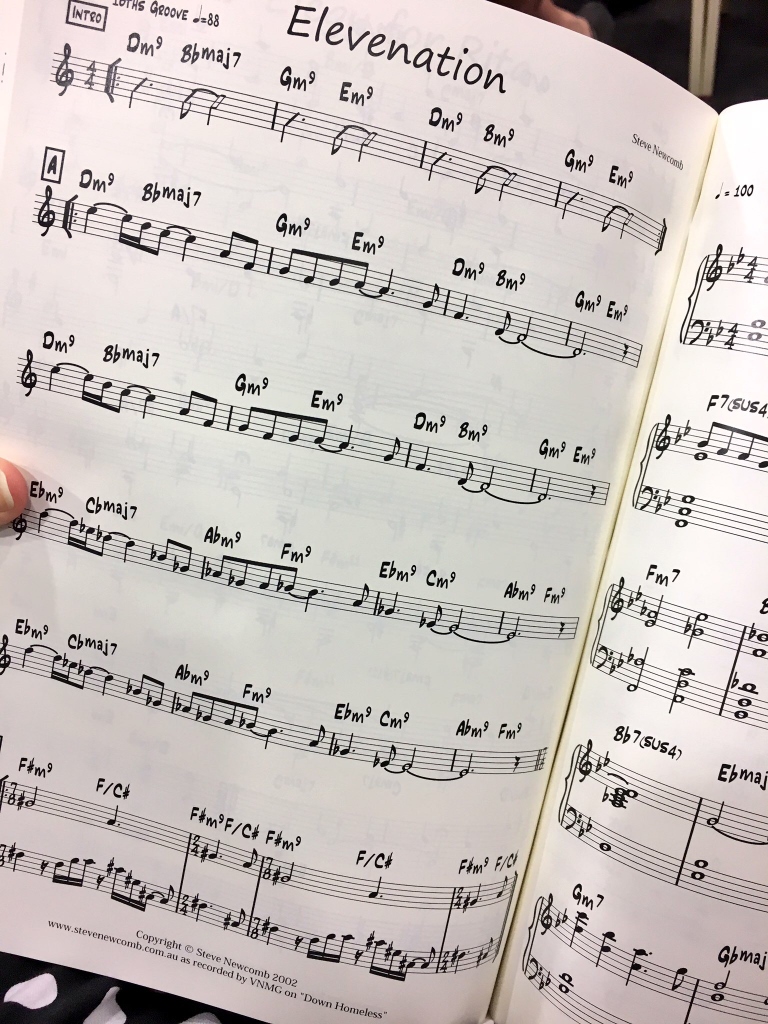 INTRO
16THS GROOVE ♩=88
Elevenation
Steve Newcomb
4 4
Dm9 Bbmaj7 Gm9 Em9 Dm9 Bm9 Gm9 Em9
A
Dm9 Bbmaj7 Gm9 Em9 Dm9 Bm9 Gm9 Em9
Dm9 Bbmaj7 Gm9 Em9 Dm9 Bm9 Gm9 Em9
Ebm9 Cbmaj7 Abm9 Fm9 Ebm9 Cm9 Abm9 Fm9
Ebm9 Cbmaj7 Abm9 Fm9 Ebm9 Cm9 Abm9 Fm9
F#m9 F/C# F#m9 F/C# F#m9 F/C# F#m9 F/C#
7 8 2 4 7 8 2 4
7 8 2 4 7 8 2 4
Copyright © Steve Newcomb 2002
www.stevenewcomb.com.au as recorded by VNMG on "Down Homeless"
♩= 100
4 4
4 4
F7(SUS4)
Fm7
Bb7(SUS4) Ebmaj
Gm7 Gbmaj